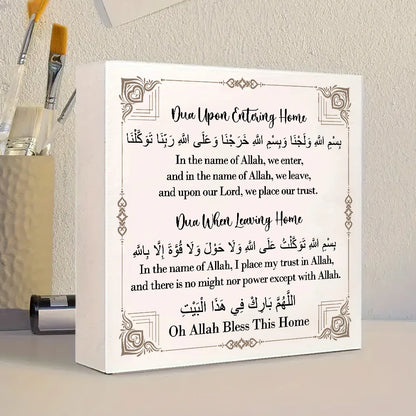 Dua Upon Entering Home
بِسْمِ اللَّهِ وَلَجْنَا وَبِسْمِ اللَّهِ خَرَجْنَا وَعَلَى اللَّهِ رَبِّنَا تَوَكَّلْنَا
In the name of Allah, we enter,
and in the name of Allah, we leave,
and upon our Lord, we place our trust.
Dua When Leaving Home
بِسْمِ اللَّهِ تَوَكَّلْتُ عَلَى اللَّهِ وَلَا حَوْلَ وَلَا قُوَّةَ إِلَّا بِاللَّهِ
In the name of Allah, I place my trust in Allah,
and there is no might nor power except with Allah.
اللَّهُمَّ بَارِكْ فِي هَذَا الْبَيْتِ
Oh Allah Bless This Home